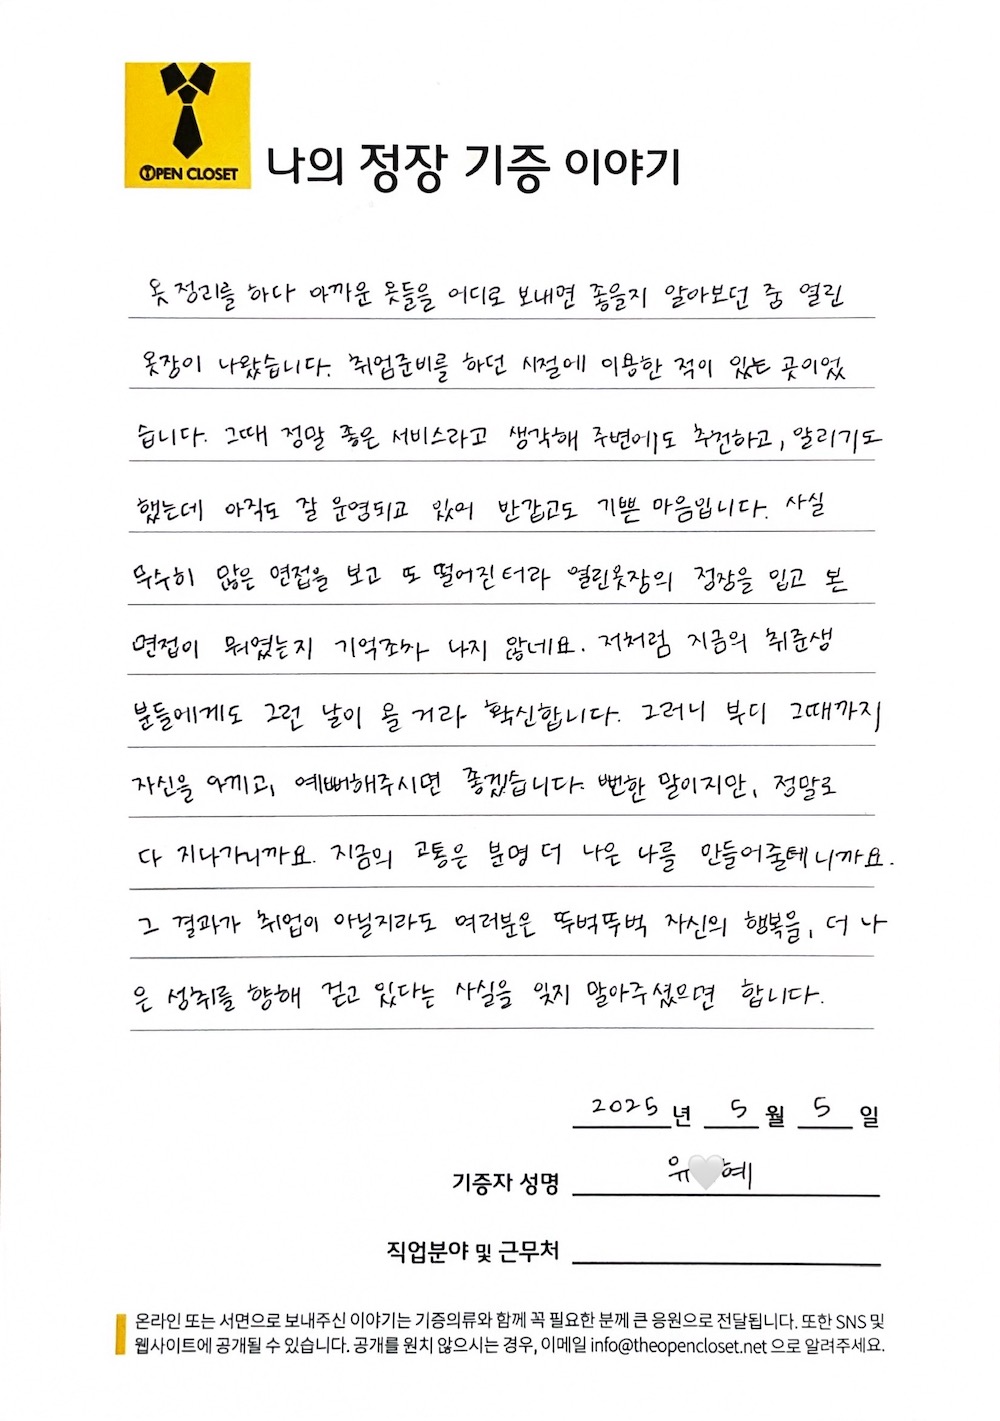 OPEN CLOSET
나의 정장 기증 이야기
옷 정리를 하다 아까운 옷들을 어디로 보내면 좋을지 알아보던 중 열린
옷장이 나왔습니다. 취업준비를 하던 시절에 이용한 적이 있는 곳이었
습니다. 그때 정말 좋은 서비스라고 생각해 주변에도 추천하고, 알리기도
했는데 아직도 잘 운영되고 있어 반갑고도 기쁜 마음입니다. 사실
무수히 많은 면접을 보고 또 떨어진터라 열린옷장의 정장을 입고 본
면접이 뭐였는지 기억조차 나지 않네요. 저처럼 지금의 취준생
분들에게도 그런 날이 올 거라 확신합니다. 그러니 부디 그때까지
자신을 아끼고, 예뻐해주시면 좋겠습니다. 뻔한 말이지만, 정말로
다 지나가니까요. 지금의 고통은 분명 더 나은 나를 만들어줄테니까요.
그 결과가 취업이 아닐지라도 여러분은 뚜벅뚜벅 자신의 행복을, 더 나
은 성취를 향해 걷고 있다는 사실을 잊지 말아주셨으면 합니다.
2025 년 5 월 5 일
기증자 성명 유🤍혜
직업분야 및 근무처
온라인 또는 서면으로 보내주신 이야기는 기증의류와 함께 꼭 필요한 분께 큰 응원으로 전달됩니다. 또한 SNS 및
웹사이트에 공개될 수 있습니다. 공개를 원치 않으시는 경우, 이메일 info@theopencloset.net 으로 알려주세요.